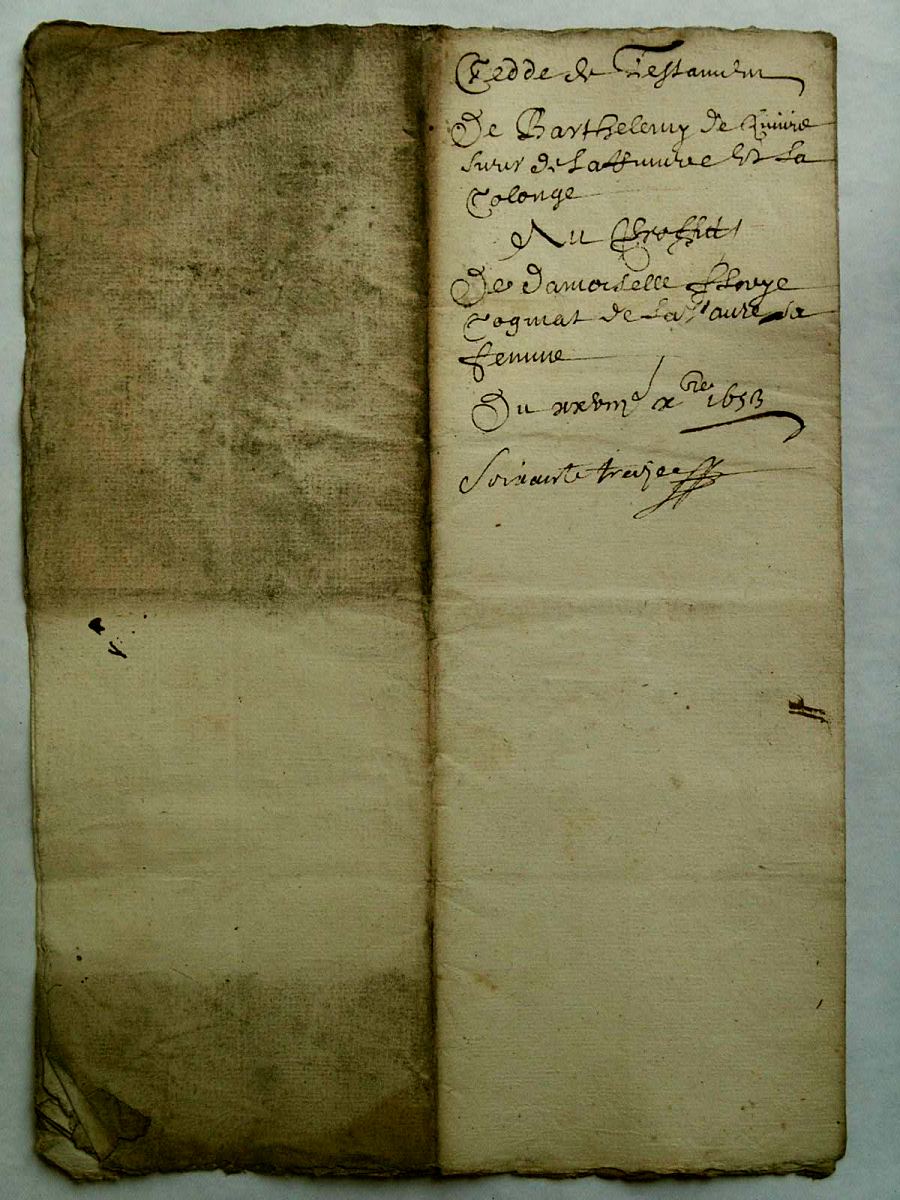 Cedde de Testament
De Barthelemy de
sieur de Laffinree Et La
Colonge
Au Proffitt
De damoiselle
Cognat de La faure sa
femme
Du xxviii^e x^bre 1653
Soixante treize